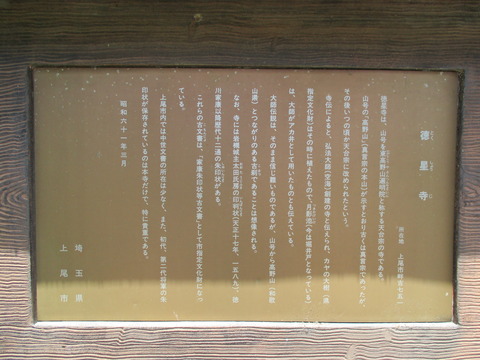 徳星寺
所在地 上尾市畔吉七五一
徳星寺は、山号を東高野山遍照院と称する天台宗の寺である。
山号の「高野山」(真言宗の本山)が示すとおり古くは真言宗であったが、
その後いつの頃か天台宗に改められたという。
寺伝によると、弘法大師(空海)創建の寺と伝えられ、カヤの大樹(県
指定文化財)はその時に植えたもので、月影池(今は堀井戸となっている)
は、大師がアカ井として用いたものとも伝えている。
大師伝説は、そのまま信じ難いものであるが、山号から高野山(和歌
山県)とつながりのある古刹であることは想像される。
なお、寺には岩槻城主太田氏房の印判状(天正十七年 一五八九)、徳
川家康以降歴代十二通の朱印状がある。
これらの古文書は、「家康朱印状等古文書」として市指定文化財になっ
ている。
上尾市内では中世文書の所在は少なく、また、初代、第二代将軍の朱
印状が保存されているのは本寺だけで、特に貴重である。
昭和六十一年三月
埼玉県
上尾市